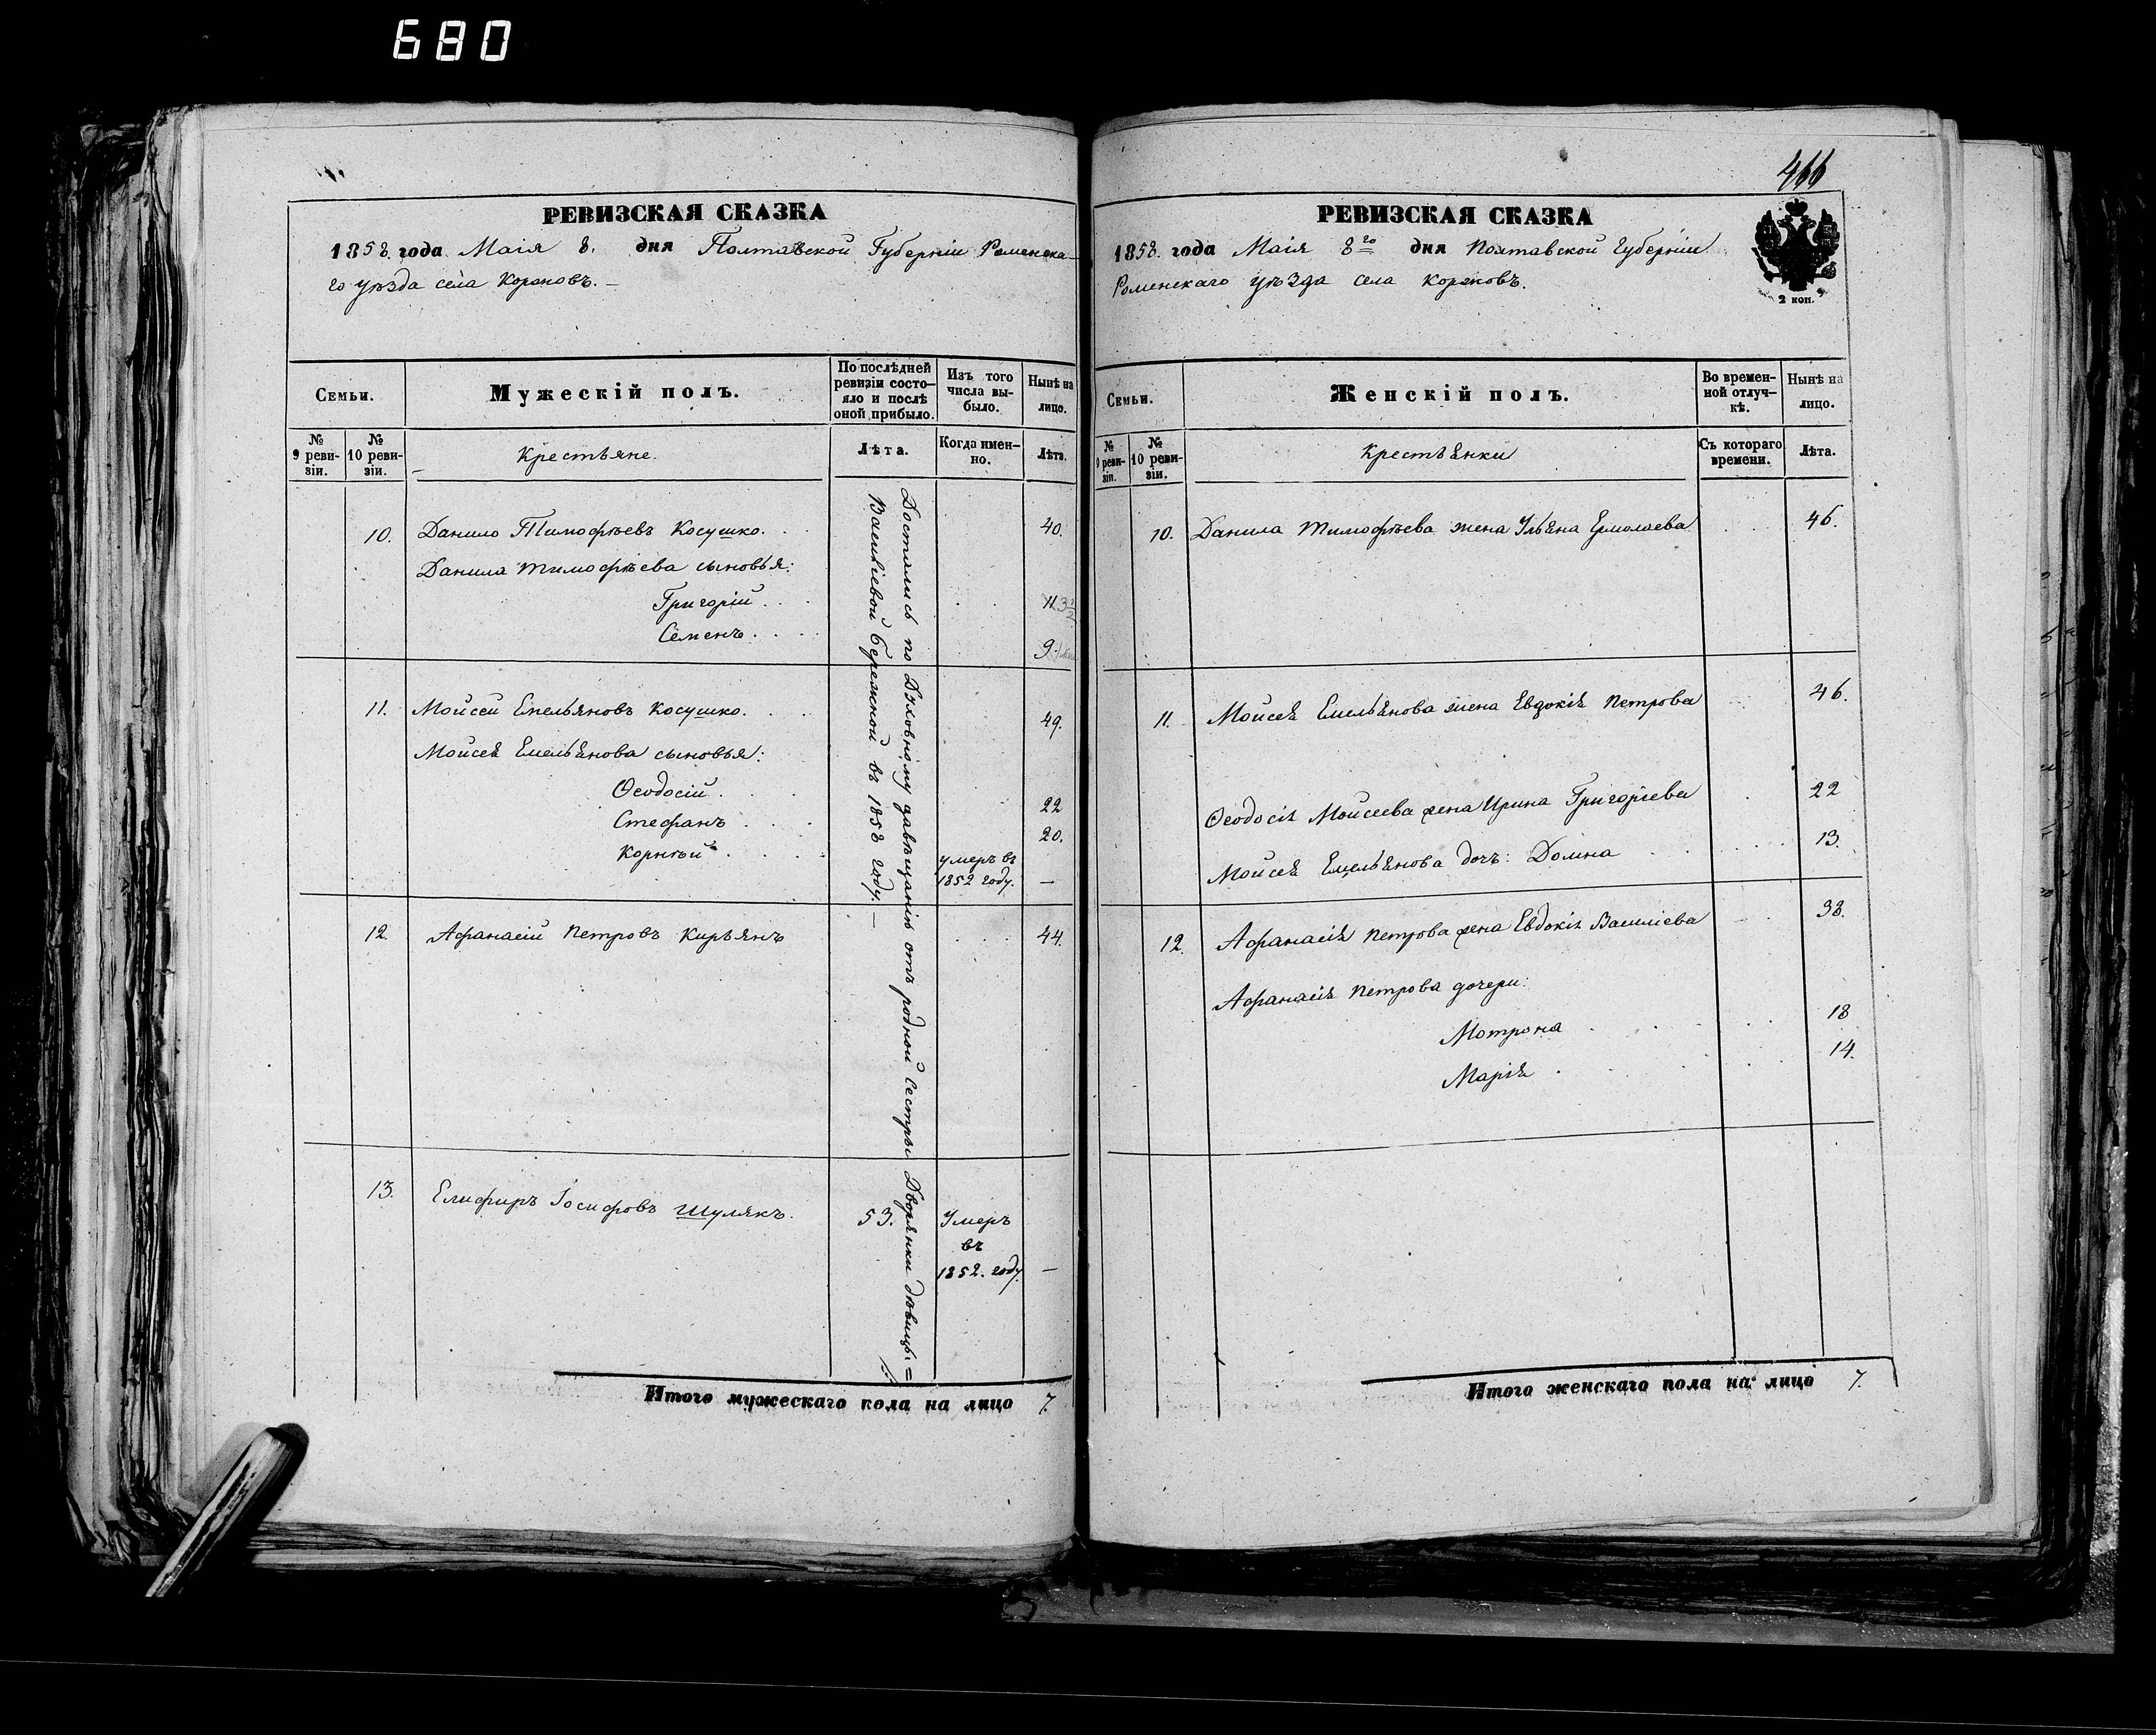 680
466
РЕВИЗСКАЯ СКАЗКА
1858. года Маія 8. дня Полтавской Губерніи Роменска-
го уѣзда села Коржовъ. –
Семьи.
Мужескій полъ.
По послѣдней ревизіи состо- яло и послѣ оной прибыло.
Изъ того числа вы- было.
Нынѣ на лицо.
№ 9 реви- зіи.
№ 10 реви- зіи.
Крестьяне.
Лѣта.
Когда имен- но.
Лѣта.
10. Данило Тимофѣевъ Косушко. 40.
Данила Тимофѣева сыновья:
Григорій 11
Семенъ 9.
11. Мойсей Емельяновъ Косушко. 49.
Мойсея Емельянова сыновья:
Ѳеодосій 22
Стефанъ 20.
Корнѣй умеръ въ 1852 году. —
12. Афанасій Петровъ Кирьянъ 44.
13. Елифиръ Іосифовъ Шулякъ. 53. Умеръ въ 1852. году —
Достались по Духовному завѣщанію отъ родной Сестры Дворянки дѣвицы =
Василіевой Бережной въ 1858 году. —
Итого мужескаго пола на лицо 7.
РЕВИЗСКАЯ СКАЗКА
1858. года Маія 8го дня Полтавской Губерніи
Роменскаго уѣзда села Коржовъ.
2 коп.
Семьи.
Женскій полъ.
Во времен- ной отлуч- кѣ.
Нынѣ на лицо.
№ 9 реви- зіи.
№ 10 реви- зіи.
Крестьянки
Съ котораго времени.
Лѣта.
10. Данила Тимофѣева жена Ульяна Ермолаева 46.
11. Мойсея Емельянова жена Евдокія Петрова 46.
Ѳеодосія Мойсеева жена Ирина Григоріева 22
Мойсея Емельянова дочь: Домна 13.
12. Афанасія Петрова жена Евдокія Василіева 38.
Афанасія Петрова дочери:
Мотрона 18
Марія 14.
Итого женскаго пола на лицо 7.